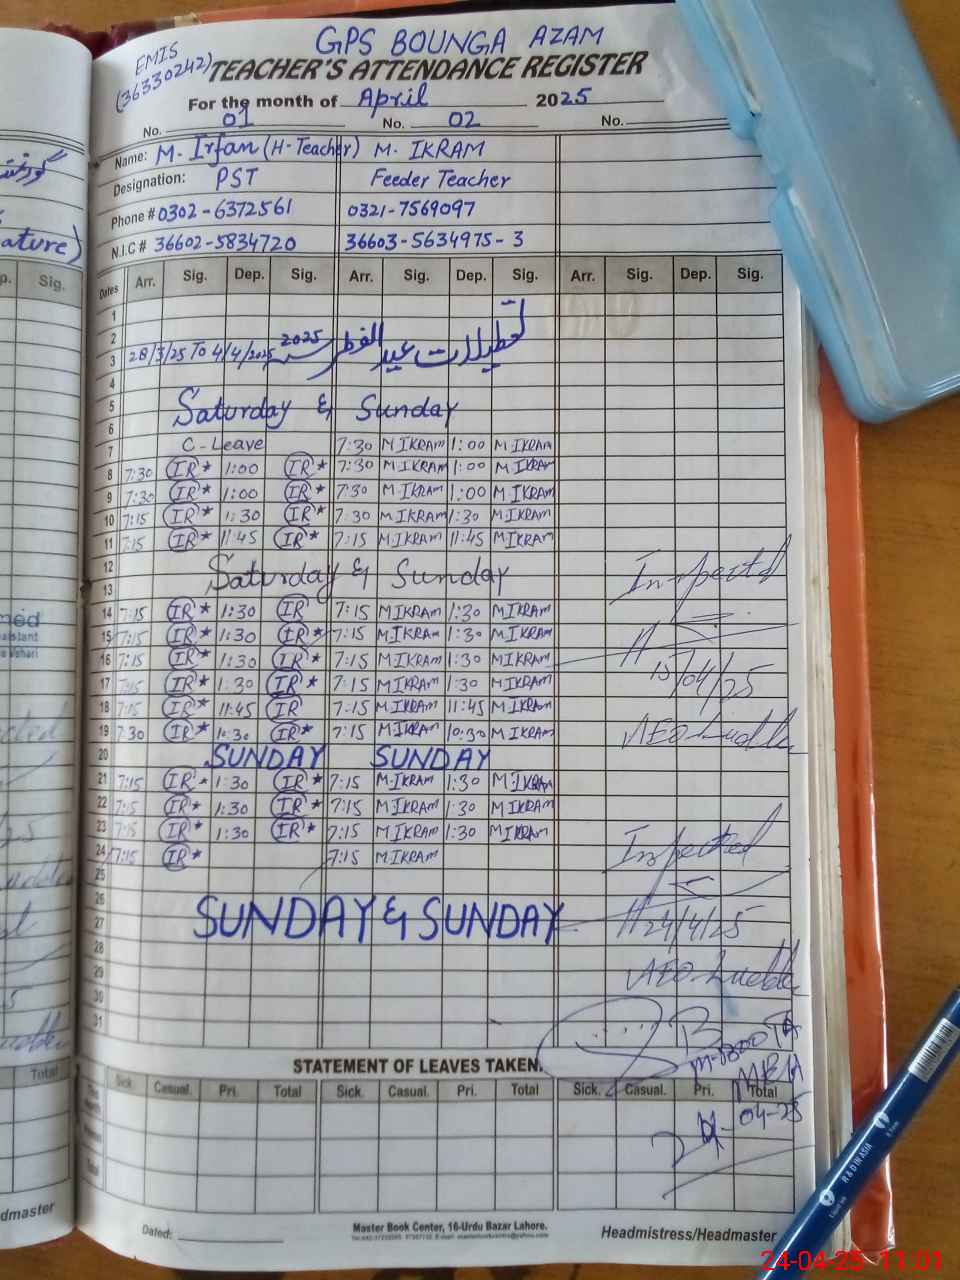 GPS BOUNGA AZAM
EMIS
(36330242)
TEACHER'S ATTENDANCE REGISTER
For the month of April 2025
No. 01 No. 02 No.
Name: M. Irfan (H-Teacher) M. IKRAM
Designation: PST Feeder Teacher
Phone # 0302-6372561 0321-7569097
N.I.C # 36602-5834720 36603-5634975-3
Dates Arr. Sig. Dep. Sig. Arr. Sig. Dep. Sig. Arr. Sig. Dep. Sig.
1
2
3 28/3/25 To 4/4/2025 تعطیلات عید الفطر 2025
4
5 Saturday & Sunday
6
7 C-Leave 7:30 M.IKRAM 1:00 M.IKRAM
8 7:30 IR* 1:00 IR* 7:30 M.IKRAM 1:00 M.IKRAM
9 7:30 IR* 1:00 IR* 7:30 M.IKRAM 1:00 M.IKRAM
10 7:15 IR* 1:30 IR* 7:30 M.IKRAM 1:30 M.IKRAM
11 7:15 IR* 11:45 IR* 7:15 M.IKRAM 11:45 M.IKRAM
12 Saturday & Sunday
13
14 7:15 IR* 1:30 IR 7:15 M.IKRAM 1:30 M.IKRAM
15 7:15 IR* 1:30 IR* 7:15 M.IKRAM 1:30 M.IKRAM
16 7:15 IR* 1:30 IR* 7:15 M.IKRAM 1:30 M.IKRAM
17 7:15 IR* 1:30 IR* 7:15 M.IKRAM 1:30 M.IKRAM
18 7:15 IR* 11:45 IR 7:15 M.IKRAM 11:45 M.IKRAM
19 7:30 IR* 10:30 IR* 7:15 M.IKRAM 10:30 M.IKRAM
20 SUNDAY SUNDAY
21 7:15 IR* 1:30 IR* 7:15 M.IKRAM 1:30 M.IKRAM
22 7:15 IR* 1:30 IR* 7:15 M.IKRAM 1:30 M.IKRAM
23 7:15 IR* 1:30 IR* 7:15 M.IKRAM 1:30 M.IKRAM
24 7:15 IR* 7:15 M.IKRAM
25
26
27 SUNDAY & SUNDAY
28
29
30
31
Inspected
15/04/25
AEO Luddan
Inspected
24/4/25
AEO Luddan
MEA
24-04-25
STATEMENT OF LEAVES TAKEN.
Sick. Casual. Pri. Total Sick. Casual. Pri. Total Sick. Casual. Pri. Total
Dated:
Master Book Center, 16-Urdu Bazar Lahore.
Headmistress/Headmaster
p. Sig.
Total
24-04-25 11:01